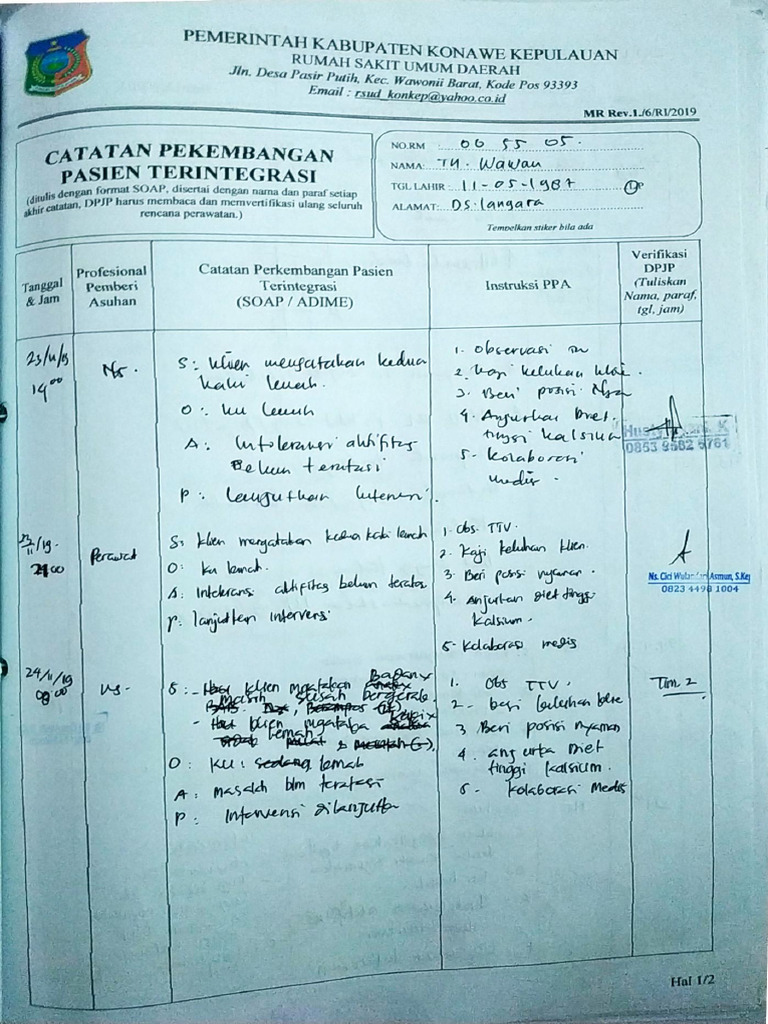 PEMERINTAH KABUPATEN KONAWE KEPULAUAN
RUMAH SAKIT UMUM DAERAH
Jln. Desa Pasir Putih, Kec. Wawonii Barat, Kode Pos 93393
Email : rsud_konkep@yahoo.co.id
MR Rev.1./6/RI/2019
CATATAN PEKEMBANGAN
PASIEN TERINTEGRASI
(ditulis dengan format SOAP, disertai dengan nama dan paraf setiap
akhir catatan, DPJP harus membaca dan memvertifikasi ulang seluruh
rencana perawatan.)
NO.RM : 00 55 05.
NAMA: Tn. Wawan
TGL LAHIR : 11-05-1987
ALAMAT: DS. langara
Tempelkan stiker bila ada
Tanggal
& Jam
Profesional
Pemberi
Asuhan
Catatan Perkembangan Pasien
Terintegrasi
(SOAP / ADIME)
Instruksi PPA
Verifikasi
DPJP
(Tuliskan
Nama, paraf,
tgl, jam)
23/11/19
14 00
Ns.
S: klien mengatakan kedua
kaki lemah.
O: ku lemah
A: Intoleransi aktifitas
Belum teratasi
P: Lanjutkan Intervensi.
1. Observasi
2. kaji keluhan klien.
3. Beri posisi
4. Anjurkan Diet
tinggi kalsium
5. kolaborasi
medis.
0853 9582 6761
23/11/19.
Perawat
S: klien mengatakan kedua kaki lemah
O: ku lemah.
A: Intoleransi aktifitas belum teratasi
P: lanjutkan intervensi
1. Obs. TTV.
2. Kaji keluhan klien.
3. Beri posisi nyaman.
4. Anjurkan diet tinggi
kalsium.
5. Kolaborasi medis
Ns. Cici Wulandari Asmun, S.Kep
0823 4498 1004
24/11/19
08 00
Ns.
S: - klien mgatakan Badan
masih susah bergerak
- klien mgatakan
lemah
O: KU: lemah
A: masalah blm teratasi
P: Intervensi dilanjutkan
1. Obs TTV.
2. kaji keluhan klien
3 Beri posisi nyaman
4. anjurkan Diet
tinggi kalsium.
5. kolaborasi Medis
Tim. 2
Hal 1/2